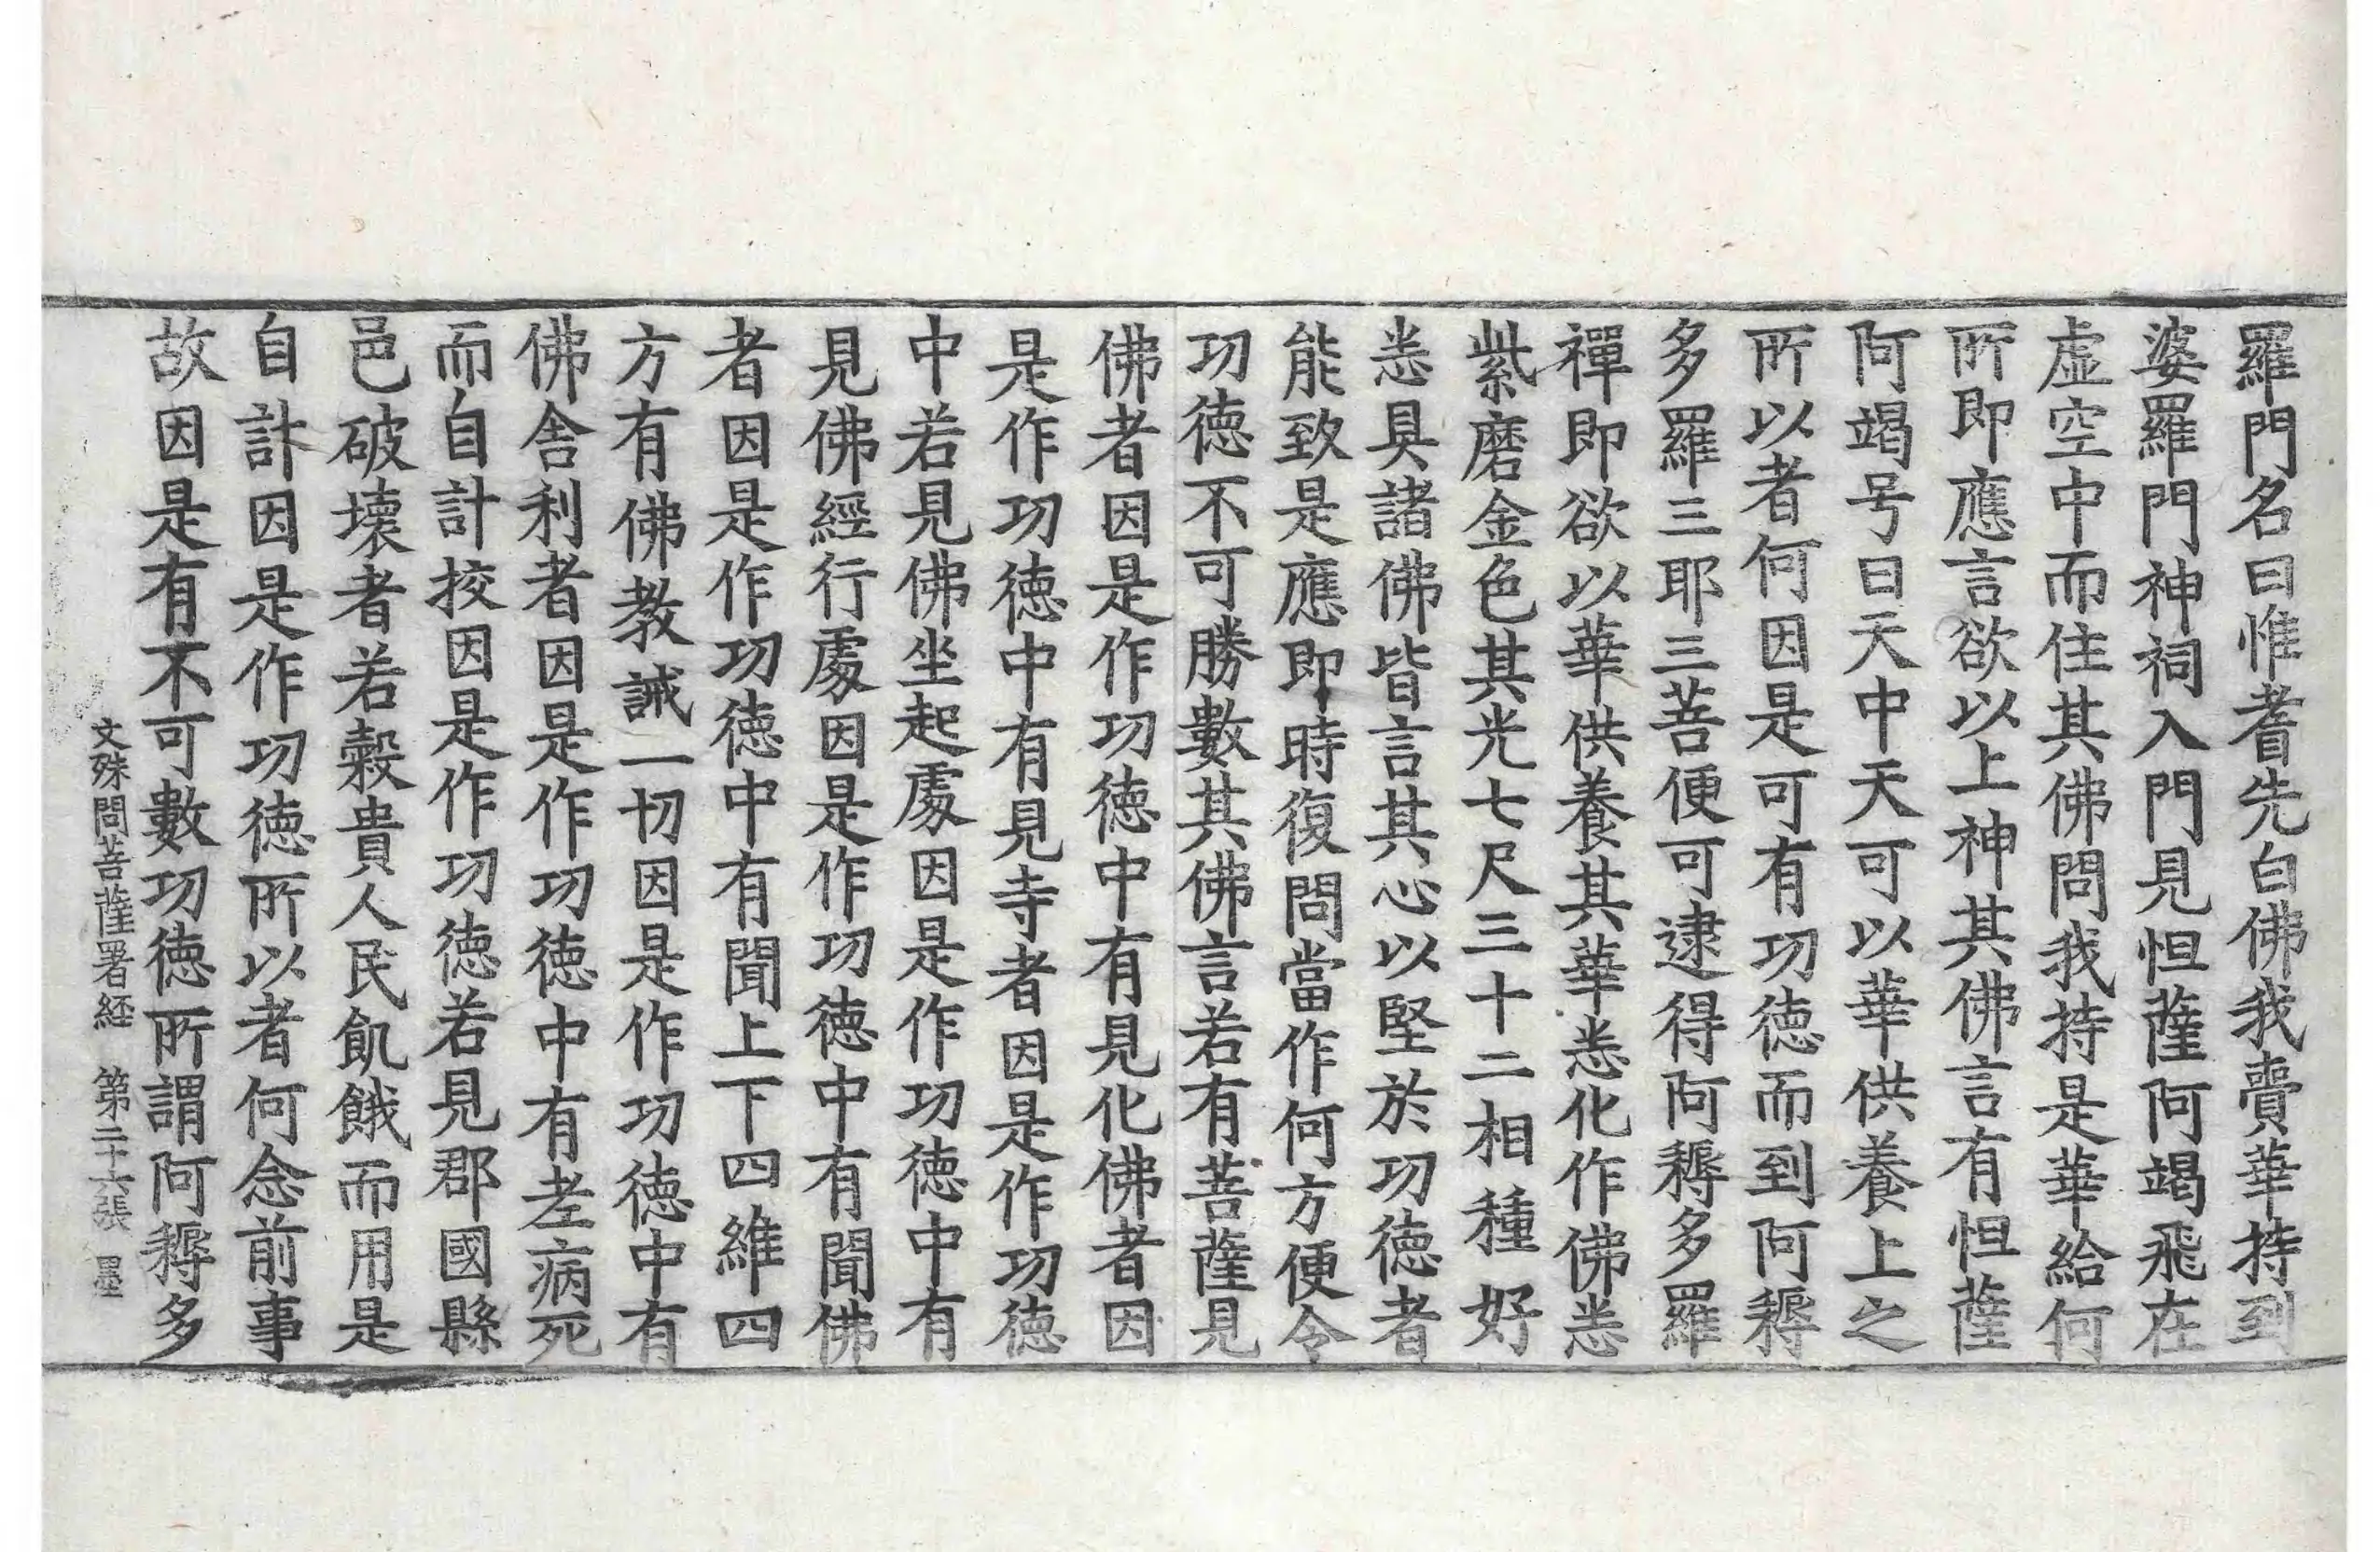 羅門名曰惟耆先白佛我賣華持到
婆羅門神祠入門見怛薩阿竭飛在
虛空中而住其佛問我持是華給何
所即應言欲以上神其佛言有怛薩
阿竭号曰天中天可以華供養上之
所以者何因是可有功德而到阿耨
多羅三耶三菩便可逮得阿耨多羅
禪即欲以華供養其華悉化作佛悉
紫磨金色其光七尺三十二相種好
悉具諸佛皆言其心以堅於功德者
能致是應即時復問當作何方便令
功德不可勝數其佛言若有菩薩見
佛者因是作功德中有見化佛者因
是作功德中有見寺者因是作功德
中若見佛坐起處因是作功德中有
見佛經行處因是作功德中有聞佛
者因是作功德中有聞上下四維四
方有佛教誡一切因是作功德中有
佛舍利者因是作功德中有老病死
而自計挍因是作功德若見郡國縣
邑破壞者若穀貴人民飢餓而用是
自計因是作功德所以者何念前事
故因是有不可數功德所謂阿耨多
文殊問菩薩署経 第二十六張 墨